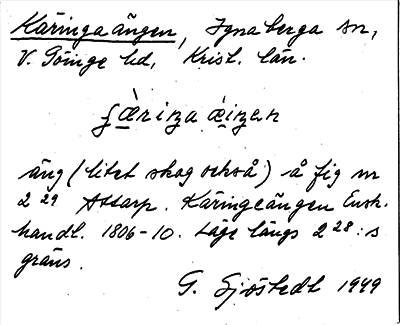 Käringaängen, Ignaberga sn,
V. Göinge hd, Krist. län.
ʃæ̀riŋa æ̀iŋen
äng (litet skog också) å fig m
2²⁹ Attarp. Käringeängen Ensk.
handl. 1806-10. Läge längs 2²⁸:s
gräns.
G. Sjöstedt 1949